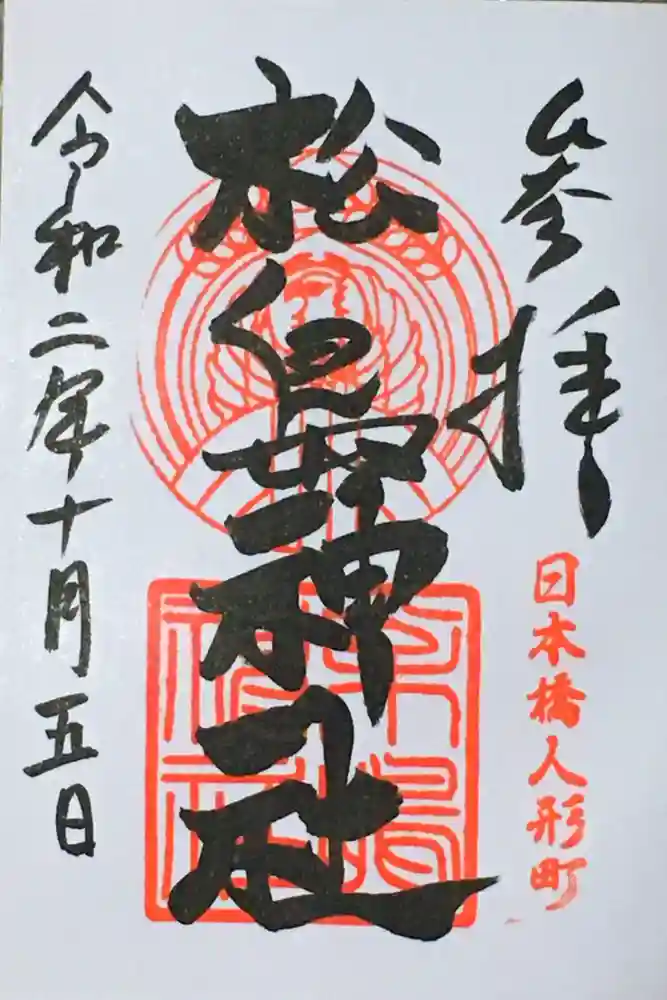 参拝
日本橋人形町
松島神社
令和二年十月五日